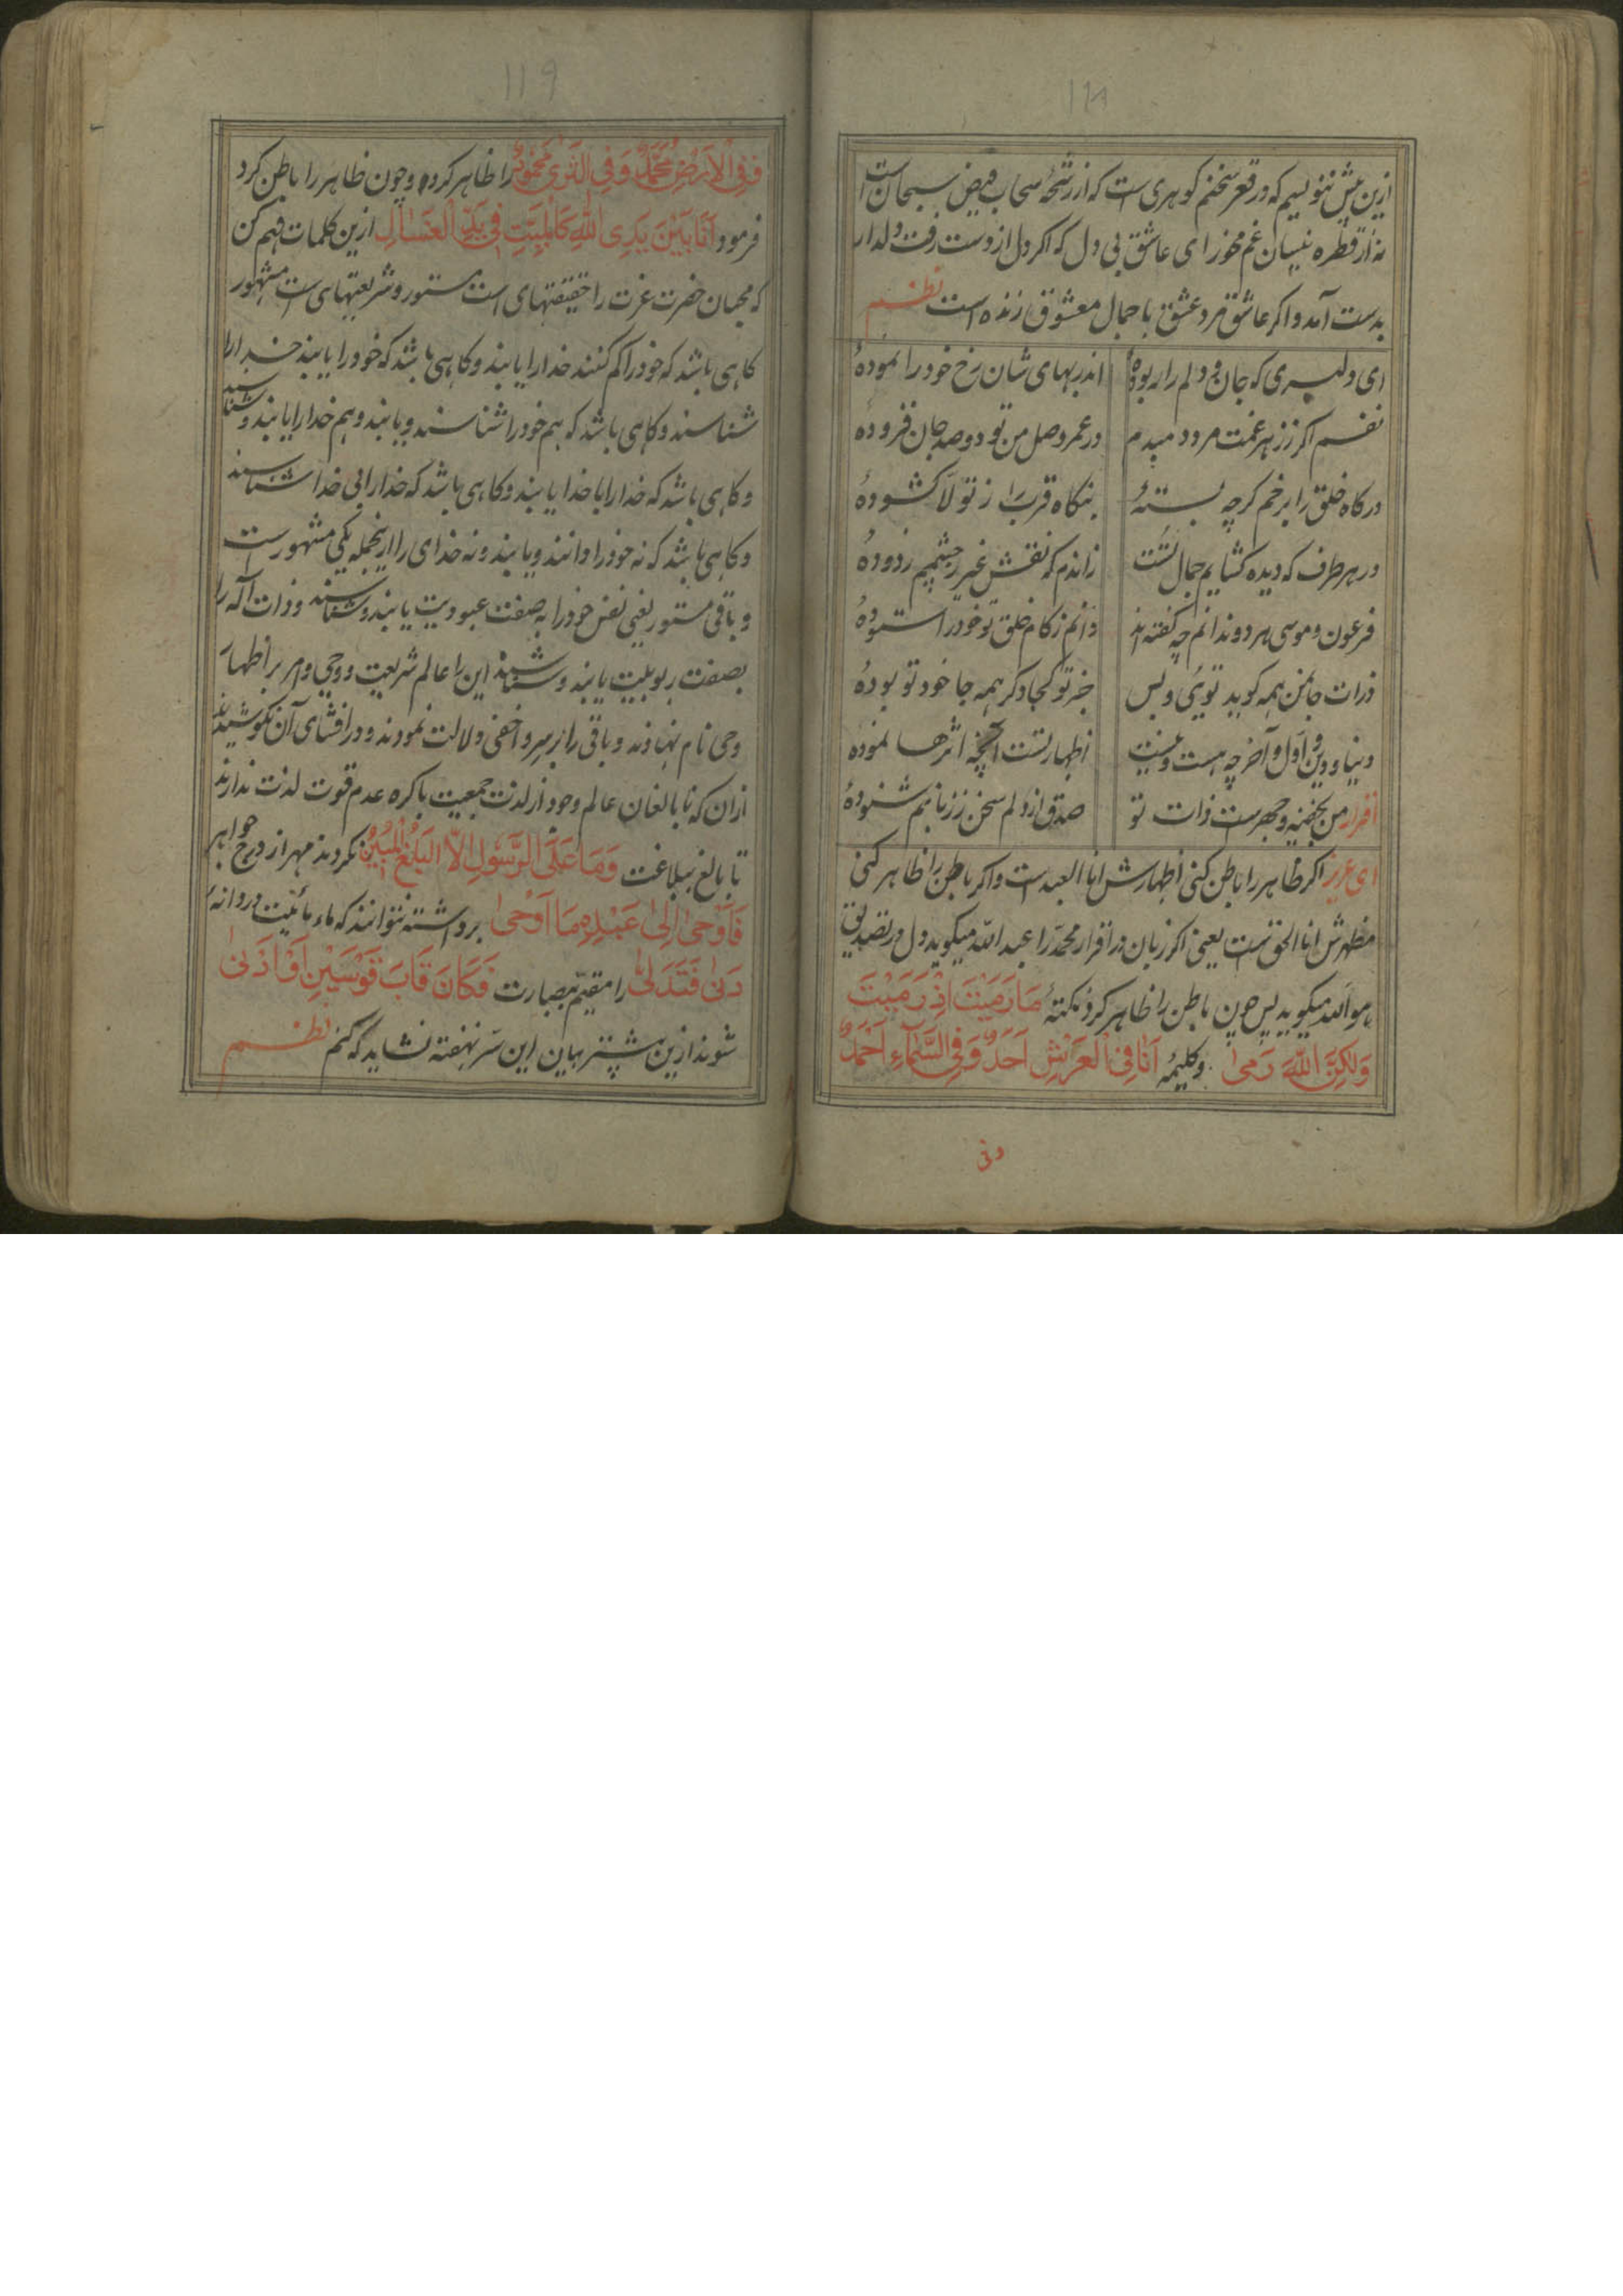 ۱۱۸
ازین بیش ننویسیم که در قعر سخنم گوهری است که از رشحه سحاب فیض سبحان است
نه از قطره نیسان غم مخور ای عاشق بی دل که اکر دل از دست رفت دلدار
بدست آمد و اکر عاشق مرد عشق با جمال معشوق زنده است نظم
ای دلبری که جان و دلم را ربودهٔ اندر بهای شان رخ خود را نمودهٔ
نفسم اکر ز زهر غمت مرد و میدم در عمر وصل من تو دو صد جان فزودهٔ
درکاه خلق را برخم کرچه بستهٔ بنکاه قرب را ز تولا کشودهٔ
در هر طرف که دیده کشایم جمال تست زاندم که نقش غیر ز چشمم زدودهٔ
فرعون و موسی هر دو ندانم چه کفته اند دانم ز کام خلق تو خود را ستودهٔ
ذرات جانمن همه کوید توئی و بس جز تو کجا دکر همه جا خود تو بودهٔ
دنیا و دین و اول و آخر چه هست و نیست اظهار تست آنچه اثرها نمودهٔ
اقرار من بخفیه و جهرست ذات تو صدق از دلم سخن ز زبانم شنودهٔ
ای عزیز اکر ظاهر را باطن کنی اظهارش انا العبد است و اکر باطن را ظاهر کنی
مظهرش انا الحق است یعنی اکر زبان در اقرار محمد را عبد الله میکوید دل در تصدیق
هو الله میکوید پس چون باطن را ظاهر کرد نکتهٔ مَا رَمَیْتَ اِذْ رَمَیْتَ
وَلکِنَّ اللّٰهَ رَمیٰ و کلیمهٔ اَنَا فِی الْعَرْشِ اَحَدٌ وَ فِی السَّمَاءِ اَحْمَدُ
وفی
۱۱۹
وَفِی الْاَرْضِ مُحَمَّدٌ وَفِی الثَّریٰ مَحْمُودٌ را ظاهر کرده و چون ظاهر را باطن کرد
فرمود اَنَا بَیْنَ یَدَیِ اللّٰهِ کَالْمَیِّتِ فِی یَدِ الْغَسَّالِ ازین کلمات فهم کن
که محبان حضرت عزت را حقیقتهای است مستور و شریعتهای است مشهور
کاهی باشد که خود را کم کنند خدا را یابند و کاهی باشد که خود را یابند خدا را
شناسند و کاهی باشد که هم خود را شناسند و یابند و هم خدا را یابند و شناسند
و کاهی باشد که خدا را با خدا یابند و کاهی باشد که خدا را بی خدا شناسند
و کاهی باشد که نه خود را دانند و یابند و نه خدای را ازینجمله یکی مشهور است
و باقی مستور یعنی نفس خود را به صفت عبودیت یابند و شناسند و ذات آله را
بصفت ربوبیت یابند و شناسند این را عالم شریعت و وحی و امر بر اظهار
وحی نام نهادند و باقی را بر سر و اخفی دلالت نمودند و در افشای آن نکوشیدند
ازان که نا بالغان عالم وجود از لذت جمعیت باکره عدم قوت لذت ندارند
تا بالغ ببلاغت وَمَا عَلَی الرَّسُولِ اِلاَّ الْبَلٰغُ الْمُبِینُ نکردند مهر از درج جواهر
فَاَوْحیٰ اِلیٰ عَبْدِهِ مَا اَوْحیٰ برداشته نتوانند که ماء مائیت دردانهٔ
دَنیٰ فَتَدَلّیٰ را مقیم بصارت فَکَانَ قَابَ قَوْسَیْنِ اَوْ اَدْنیٰ
شوند ازین بیشتر بیان این سر نهفته نشاید که کنم نظم